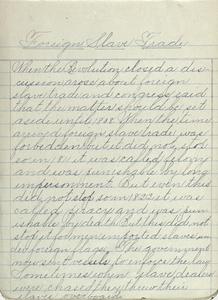 Foreign Slave Trade
When the Revolution closed a dis-
cussion arose about foreign
slave trade and congress said
that the matter should be set
aside until 1808. When the time
arrived foreign slave trade was
forbidden but it did not stop
so in it was called felony
and was punishable by long
imprisonment. But even this
did not stop so in 1822 it was
called piracy and was pun-
ishable by death. But this did not
stop it for men imported slaves un-
der foreign flags. The government
now sent vessels to enforce the law
Sometimes when slave dealers
were chased they threw their
slaves overboard